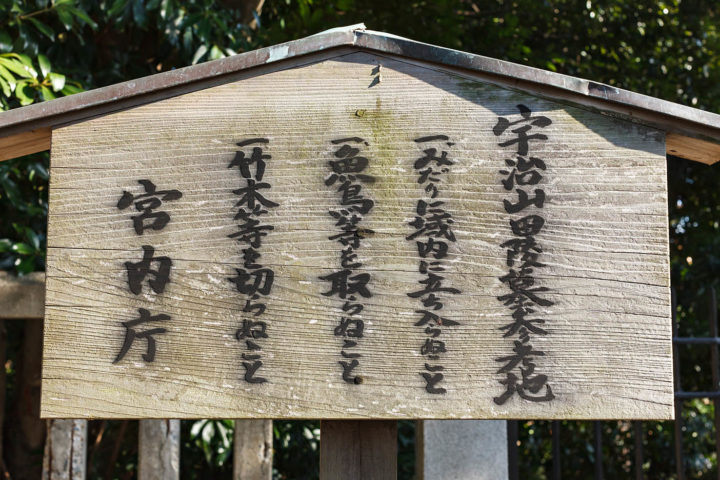 宇治山田陵墓参考地
一みだりに域内に立ち入らぬこと
一魚鳥等を取らぬこと
一竹木等を切らぬこと
宮内庁